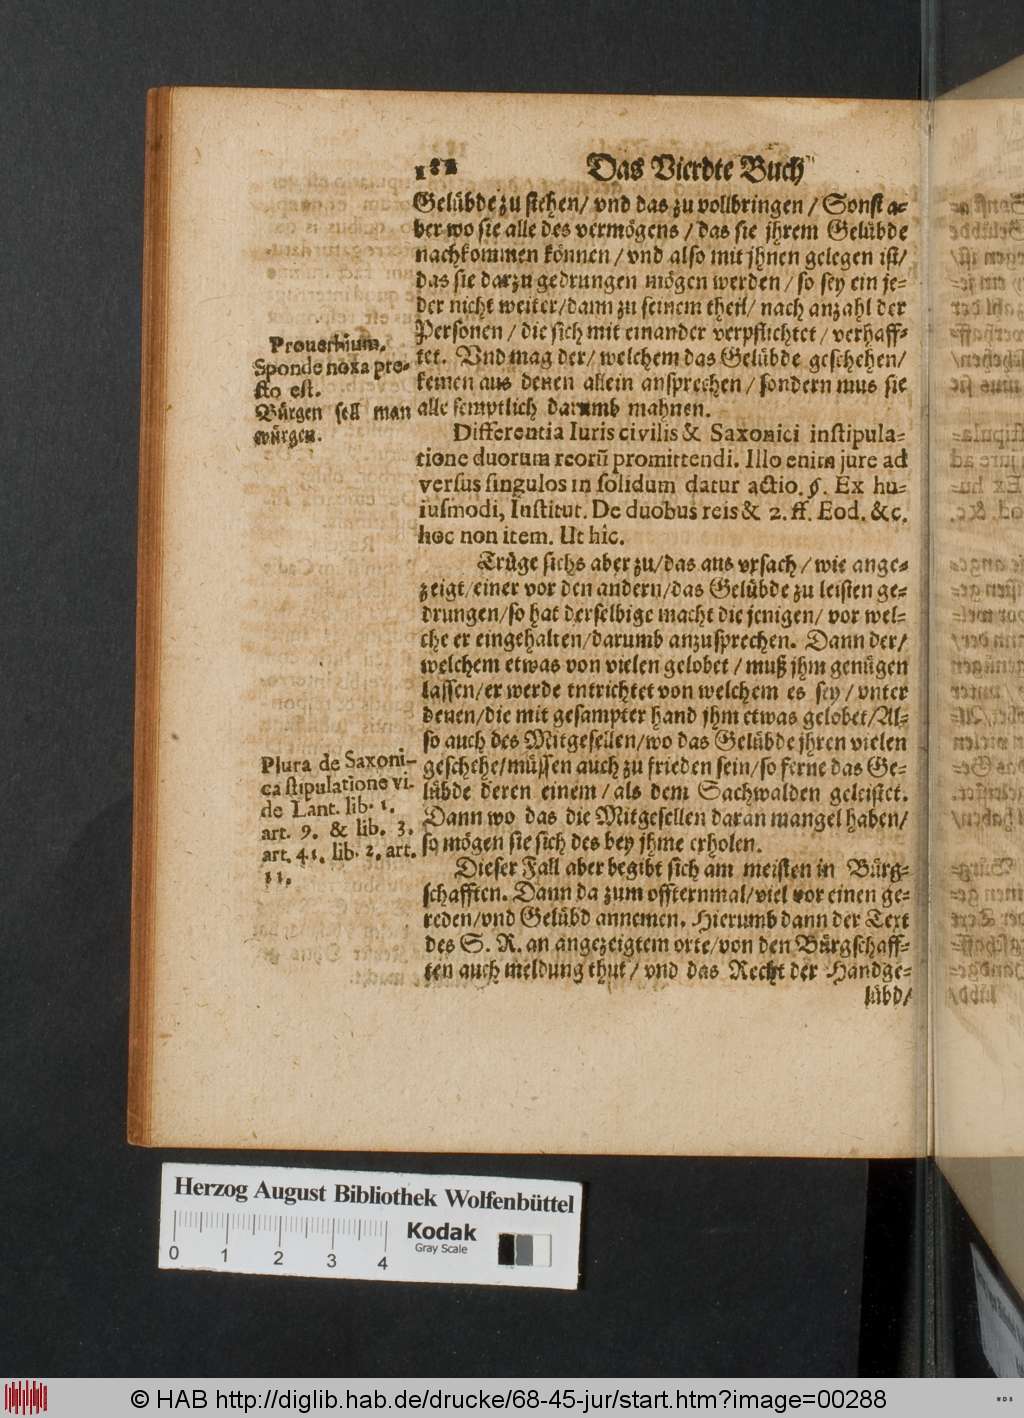 182 Das Vierdte Buch
Gelübde zu stehen/ vnd das zu vollbringen / Sonst a-
ber wo sie alle des vermögens / das sie jhrem Gelübde
nachkommen können / vnd also mit jhnen gelegen ist/
das sie darzu gedrungen mögen werden / so sey ein je-
der nicht weiter/dann zu seinem theil/ nach anzahl der
Personen / die sich mit einander verpflichtet / verhaff-
tet. Vnd mag der/ welchem das Gelübde geschehen/
keinen aus denen allein ansprechen / sondern mus sie
alle semptlich darumb mahnen.
Prouerbium.
Sponde noxa pre-
sto est.
Bürgen soll man
würgen.
Differentia Iuris civilis & Saxonici instipula-
tione duorum reorū promittendi. Illo enim jure ad
versus singulos in solidum datur actio. §. Ex hu-
iusmodi, Institut. De duobus reis & 2. ff. Eod. &c.
hoc non item. Ut hîc.
Trüge sichs aber zu/das aus vrsach/ wie ange-
zeigt/einer vor den andern/das Gelübde zu leisten ge-
drungen/so hat derselbige macht die jenigen/ vor wel-
che er eingehalten/darumb anzusprechen. Dann der/
welchem etwas von vielen gelobet / muß jhm genügen
lassen/er werde entrichtet von welchem es sey / vnter
denen/die mit gesampter hand jhm etwas gelobet/Al-
so auch des Mitgesellen/wo das Gelübde jhren vielen
geschehe/müssen auch zu frieden sein/so ferne das Ge-
lübde deren einem/ als dem Sachwalden geleistet.
Dann wo das die Mitgesellen daran mangel haben/
so mögen sie sich des bey jhme erholen.
Plura de Saxoni-
ca stipulatione vi-
de Lant. lib. 1.
art. 9. & lib. 3.
art. 41. lib. 2. art.
11.
Dieser Fall aber begibt sich am meisten in Bürg-
schafften. Dann da zum offternmal/viel vor einen ge-
reden/vnd Gelübd annemen. Hierumb dann der Text
des S. R. an angezeigtem orte/von den Bürgschaff-
ten auch meldung thut / vnd das Recht der Handge-
lübd/
Herzog August Bibliothek Wolfenbüttel
Kodak
Gray Scale
0 1 2 3 4
© HAB http://diglib.hab.de/drucke/68-45-jur/start.htm?image=00288